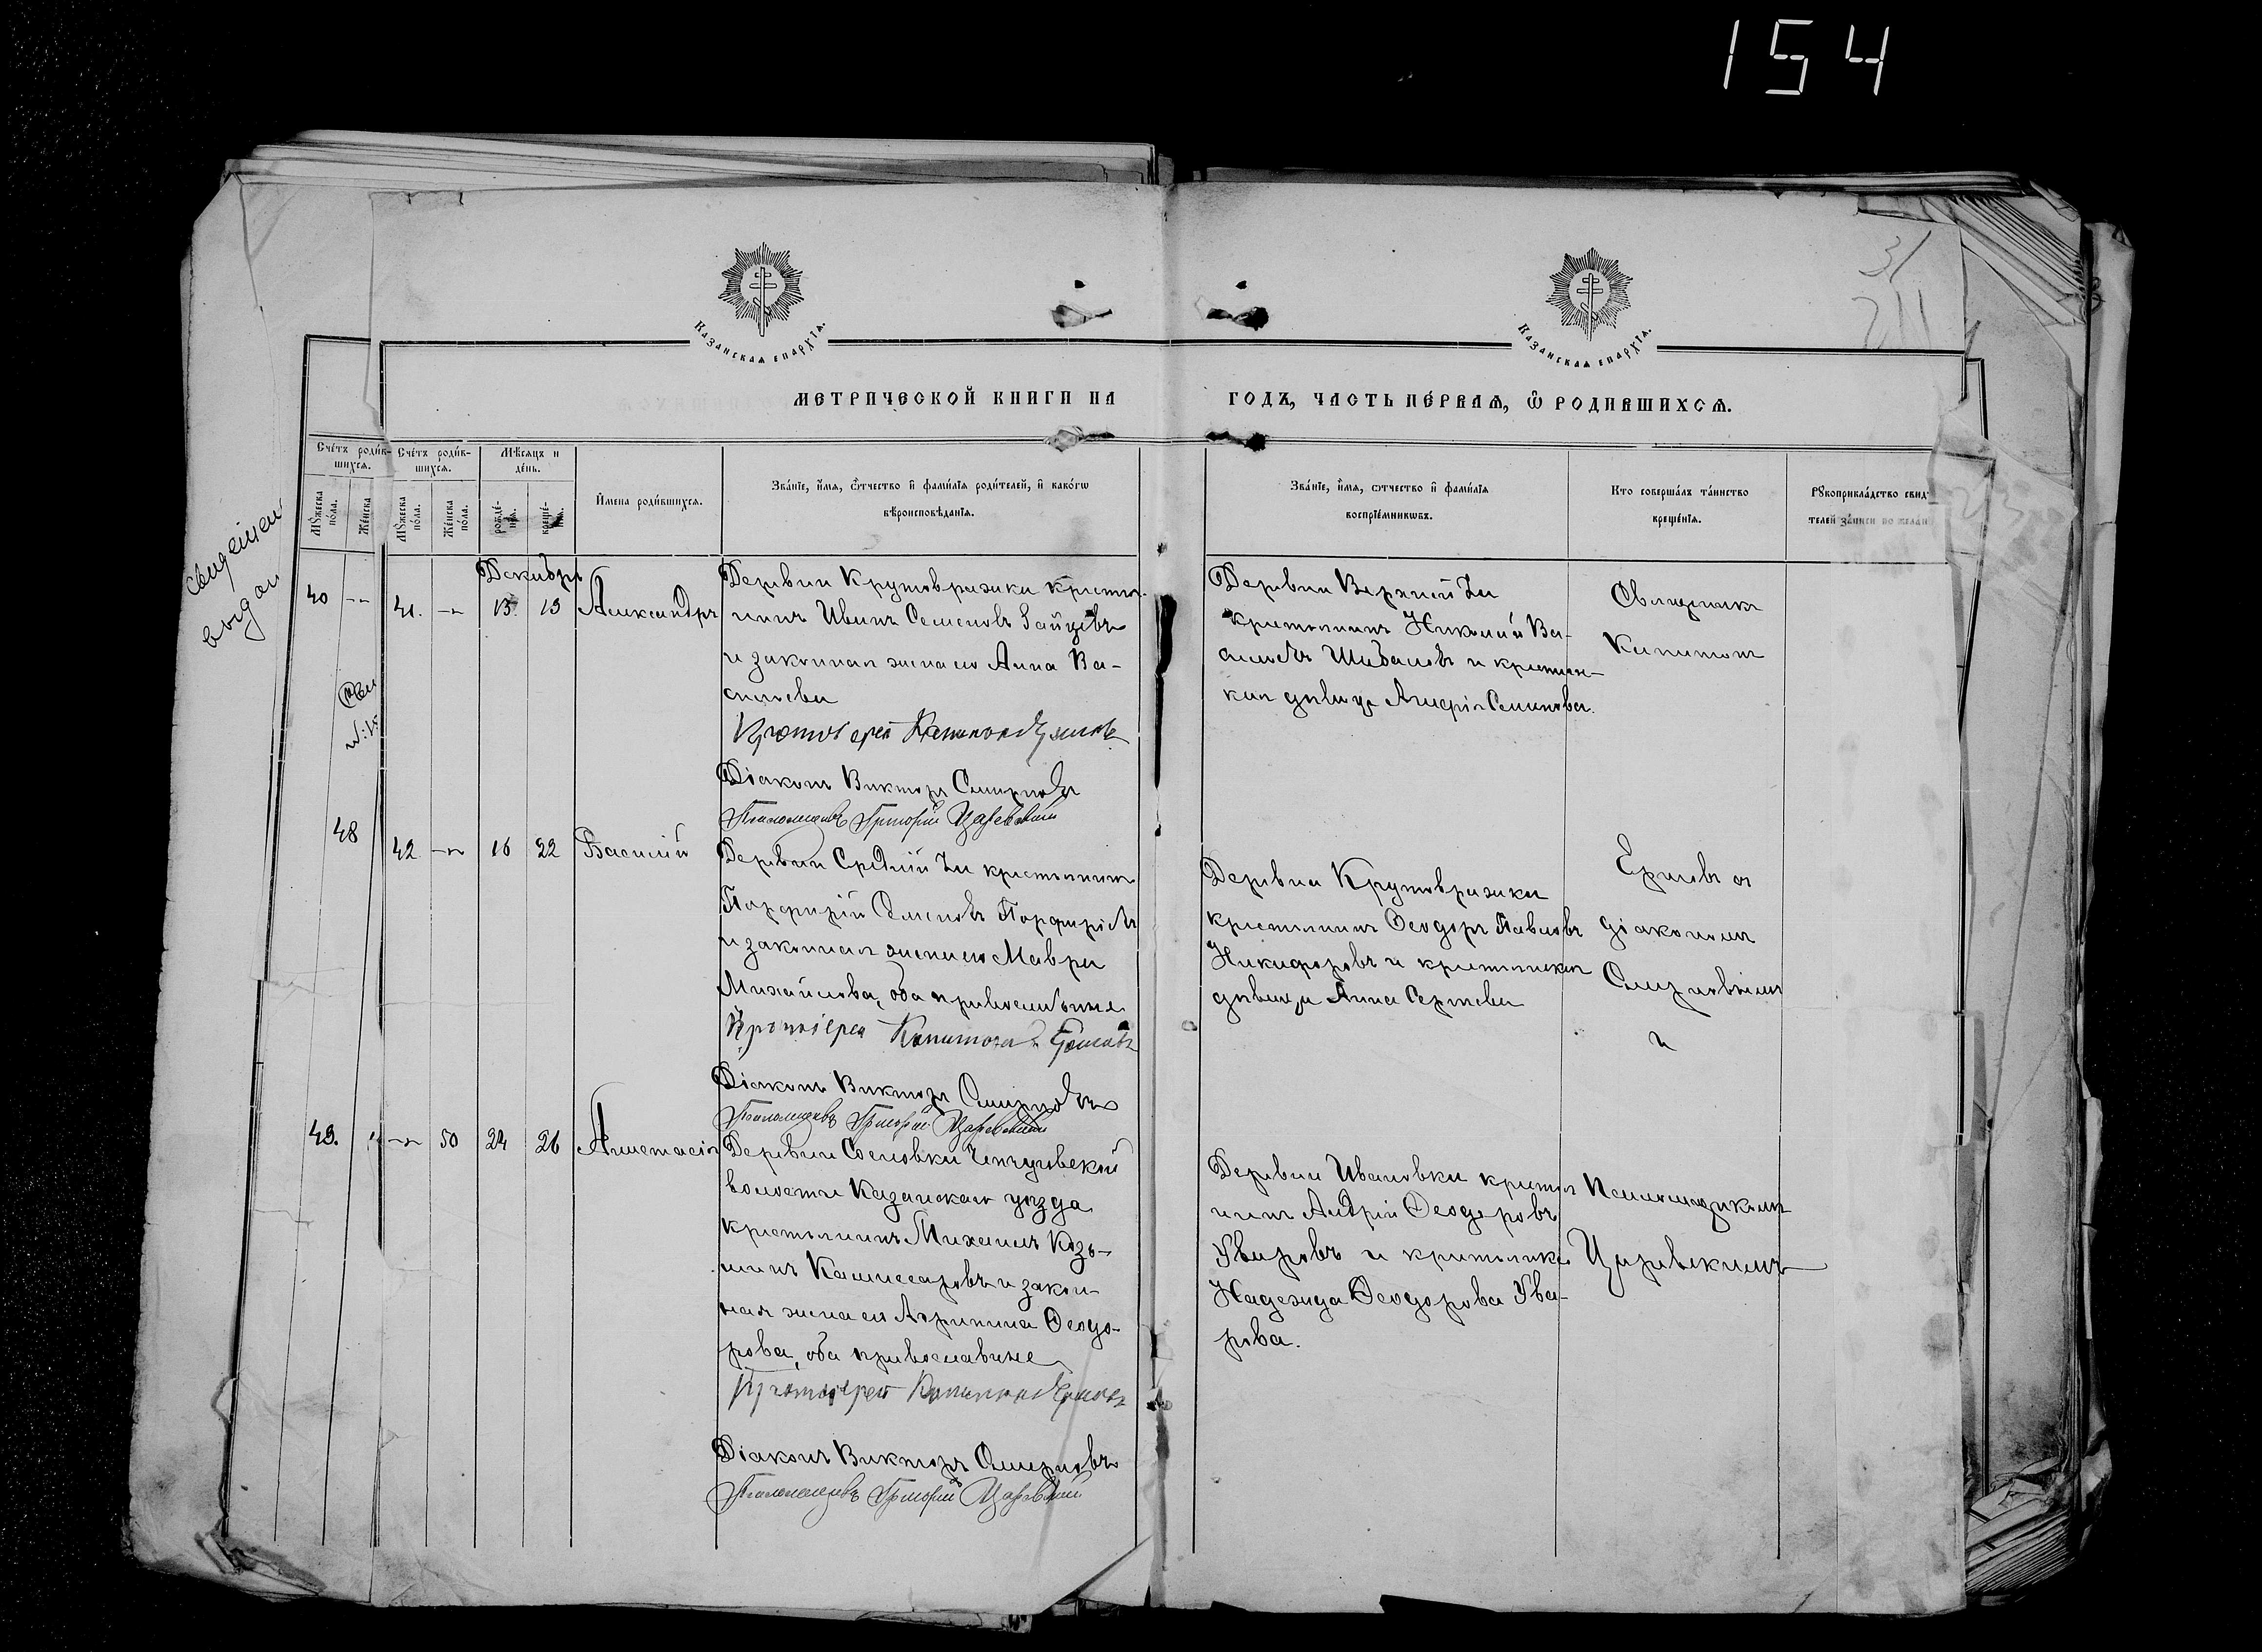 154
31
211
КАЗАНСКАѦ ЕПАРХІѦ.
КАЗАНСКАѦ ЕПАРХІѦ.
МЕТРИЧЕСКОЙ КНИГИ НА ГОДЪ, ЧАСТЬ ПЕ́РВАѦ, Ѿ РОДИВШИХСѦ.
Сче́тъ роди́в-
шихсѧ.
Мꙋ́жеска по́ла.
Же́нска
Сче́тъ роди́в-
шихсѧ.
Мꙋ́жеска по́ла.
Же́нска по́ла.
Мѣ́сѧцъ и де́нь.
рожде́-нїѧ.
креще́-нїѧ.
И҆мена роди́вшихсѧ.
Зва́нїе, и҆́мѧ, ѻ҆́тчество и҆ фами́лїѧ роди́телей, и҆ како́гѡ
вѣроисповѣ́данїѧ.
Зва́нїе, и҆́мѧ, ѻ҆́тчество и҆ фами́лїѧ
воспрїе́мникѡвъ.
Кто̀ соверша́лъ та́инство
креще́нїѧ.
Рꙋкоприкла́дство свид
телей за́писи по жела
выдан
40
Декабрь
41. 13 13 Александръ
Деревни Крутовражки крестья-
нинъ Иванъ Семеновъ Зайцевъ
и законная жена его Анна Ва-
сильева
Протоіерей Капитонъ Ермловъ
Діаконъ Викторъ Смирновъ
Псаломщикъ Григорій Царевскій
Деревни Верхней
крестьянинъ Николай Ва-
сильевъ Шибаловъ и крестьян-
кая дѣвица Семенова.
Священникъ
Капитонъ
48
42 16 22 Василій
Деревни Средній крестьянинъ
Порфирій Семеновъ Порфирьевъ
и законная жена его Мавра
Михайлова, оба православные
Протоіерей Капитонъ
Діаконъ Викторъ Смирновъ
Псаломщикъ Григорій Царевскій
Деревни Крутовражки
крестьянинъ Ѳеодоръ Павловъ
Никифоровъ и крестьянская
дѣвица Анна Сергеева
съ
діакономъ
Смирновымъ
и
49.
50 24 26 Анастасія
Деревни Сосновки
волости Казанскаго уѣзда
крестьянинъ Михаилъ Козь-
минъ Комиссаровъ и закон-
ная жена его Агрипина Ѳеодо-
рова, оба православные
Протоіерей Капитонъ
Діаконъ Викторъ Смирновъ
Псаломщикъ Григорій Царевскій
Деревни Ивановки крестья
нинъ Андрей Ѳеодоровъ
Уваровъ и крестьянка
Надежда Ѳеодорова Ува-
рова.
Псаломщикомъ
Царевскимъ